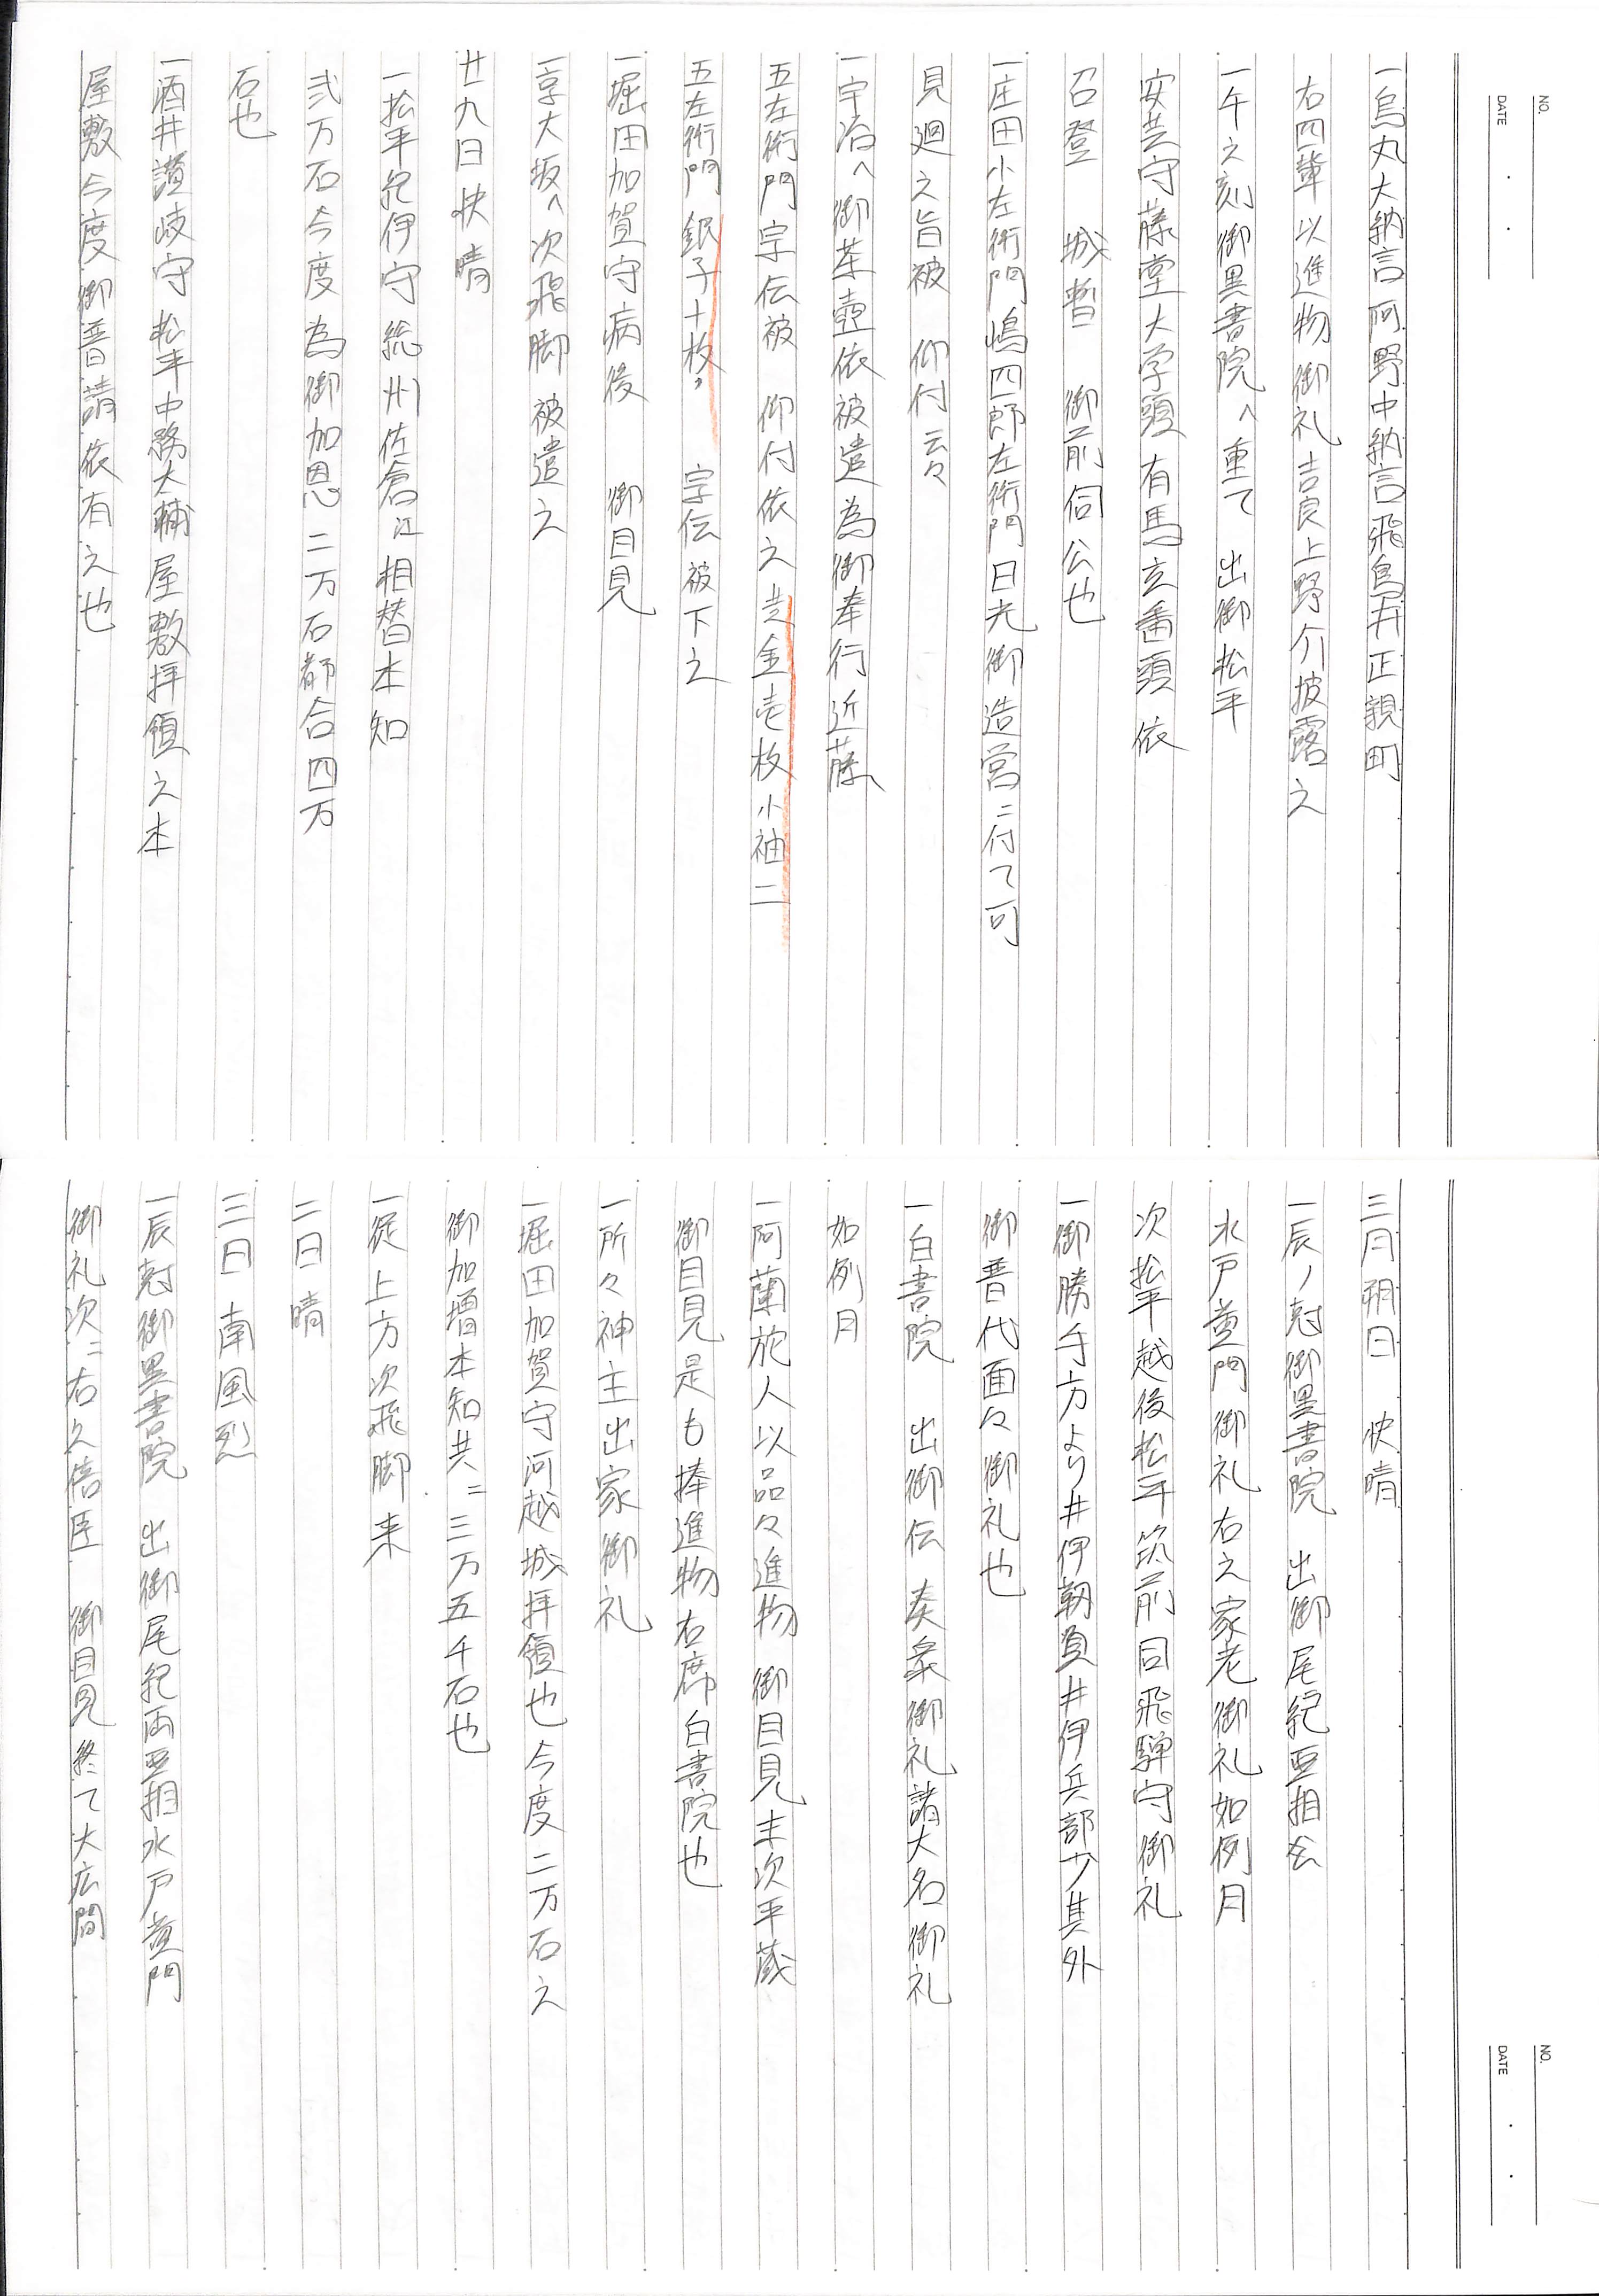 NO.
DATE
一烏丸大納言阿野中納言飛鳥井正親町
右四輩以進物御礼吉良上野介披露之
一午之刻御黒書院へ重て 出御松平
安芸守藤堂大学頭有馬玄番頭依
召登 城暫 御前伺公也
一庄田小左衛門嶋四郎左衛門日光御造営ニ付て可
見廻之旨被 仰付云々
一宇治へ御茶壺依被遣為御奉行近藤
五左衛門宗伝被 仰付依之黄金壱枚小袖二
五左衛門銀子十枚, 宗伝被下之
一堀田加賀守病後 御目見
一京大坂へ次飛脚被遣之
廿九日快晴
一松平紀伊守総州佐倉江相替本知
弐万石今度為御加恩二万石都合四万
石也
一酒井讃岐守松平中務大輔屋敷拝領之本
屋敷今度御普請依有之也
NO.
DATE
三月朔日 快晴
一辰ノ尅御黒書院 出御尾紀亜相公
水戸黄門御礼右之家老御礼如例月
次松平越後松平筑前同飛騨守御礼
一御勝手方より井伊靭負井伊兵部少其外
御普代面々御礼也
一白書院 出御伝奏衆御礼諸大名御礼
如例月
一阿蘭陀人以品々進物御目見末次平蔵
御目見是も捧進物右席白書院也
一所々神主出家御礼
一堀田加賀守河越城拝領也今度二万石之
御加増本知共ニ三万五千石也
一従上方次飛脚来
二日 晴
三日 南風烈
一辰尅御黒書院 出御尾紀両亜相水戸黄門
御礼次ニ右久倍臣 御目見終て大広間